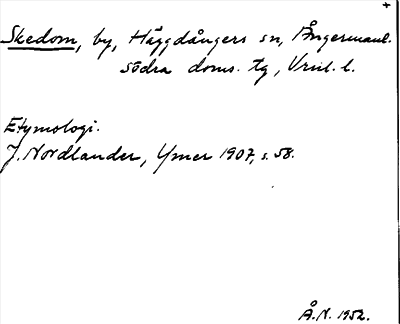 +
Skedom, by, Häggdångers sn, Ångermanl.
södra doms. tg, Vrnl. l.
Etymologi.
J. Nordlander, Ymer 1907, s. 58.
Å.N. 1952.